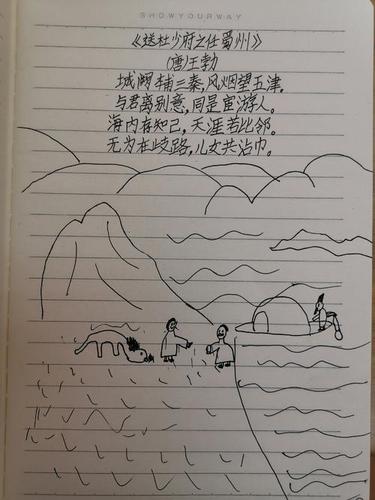 SHOWYOURWAY
《送杜少府之任蜀州》
(唐)王勃
城阙辅三秦,风烟望五津。
与君离别意,同是宦游人。
海内存知己,天涯若比邻。
无为在歧路,儿女共沾巾。